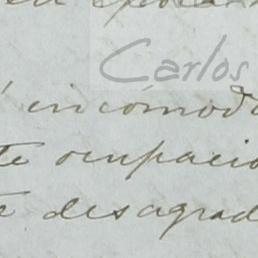 Carlos
é incómoda
te ocupacio
te desagrad